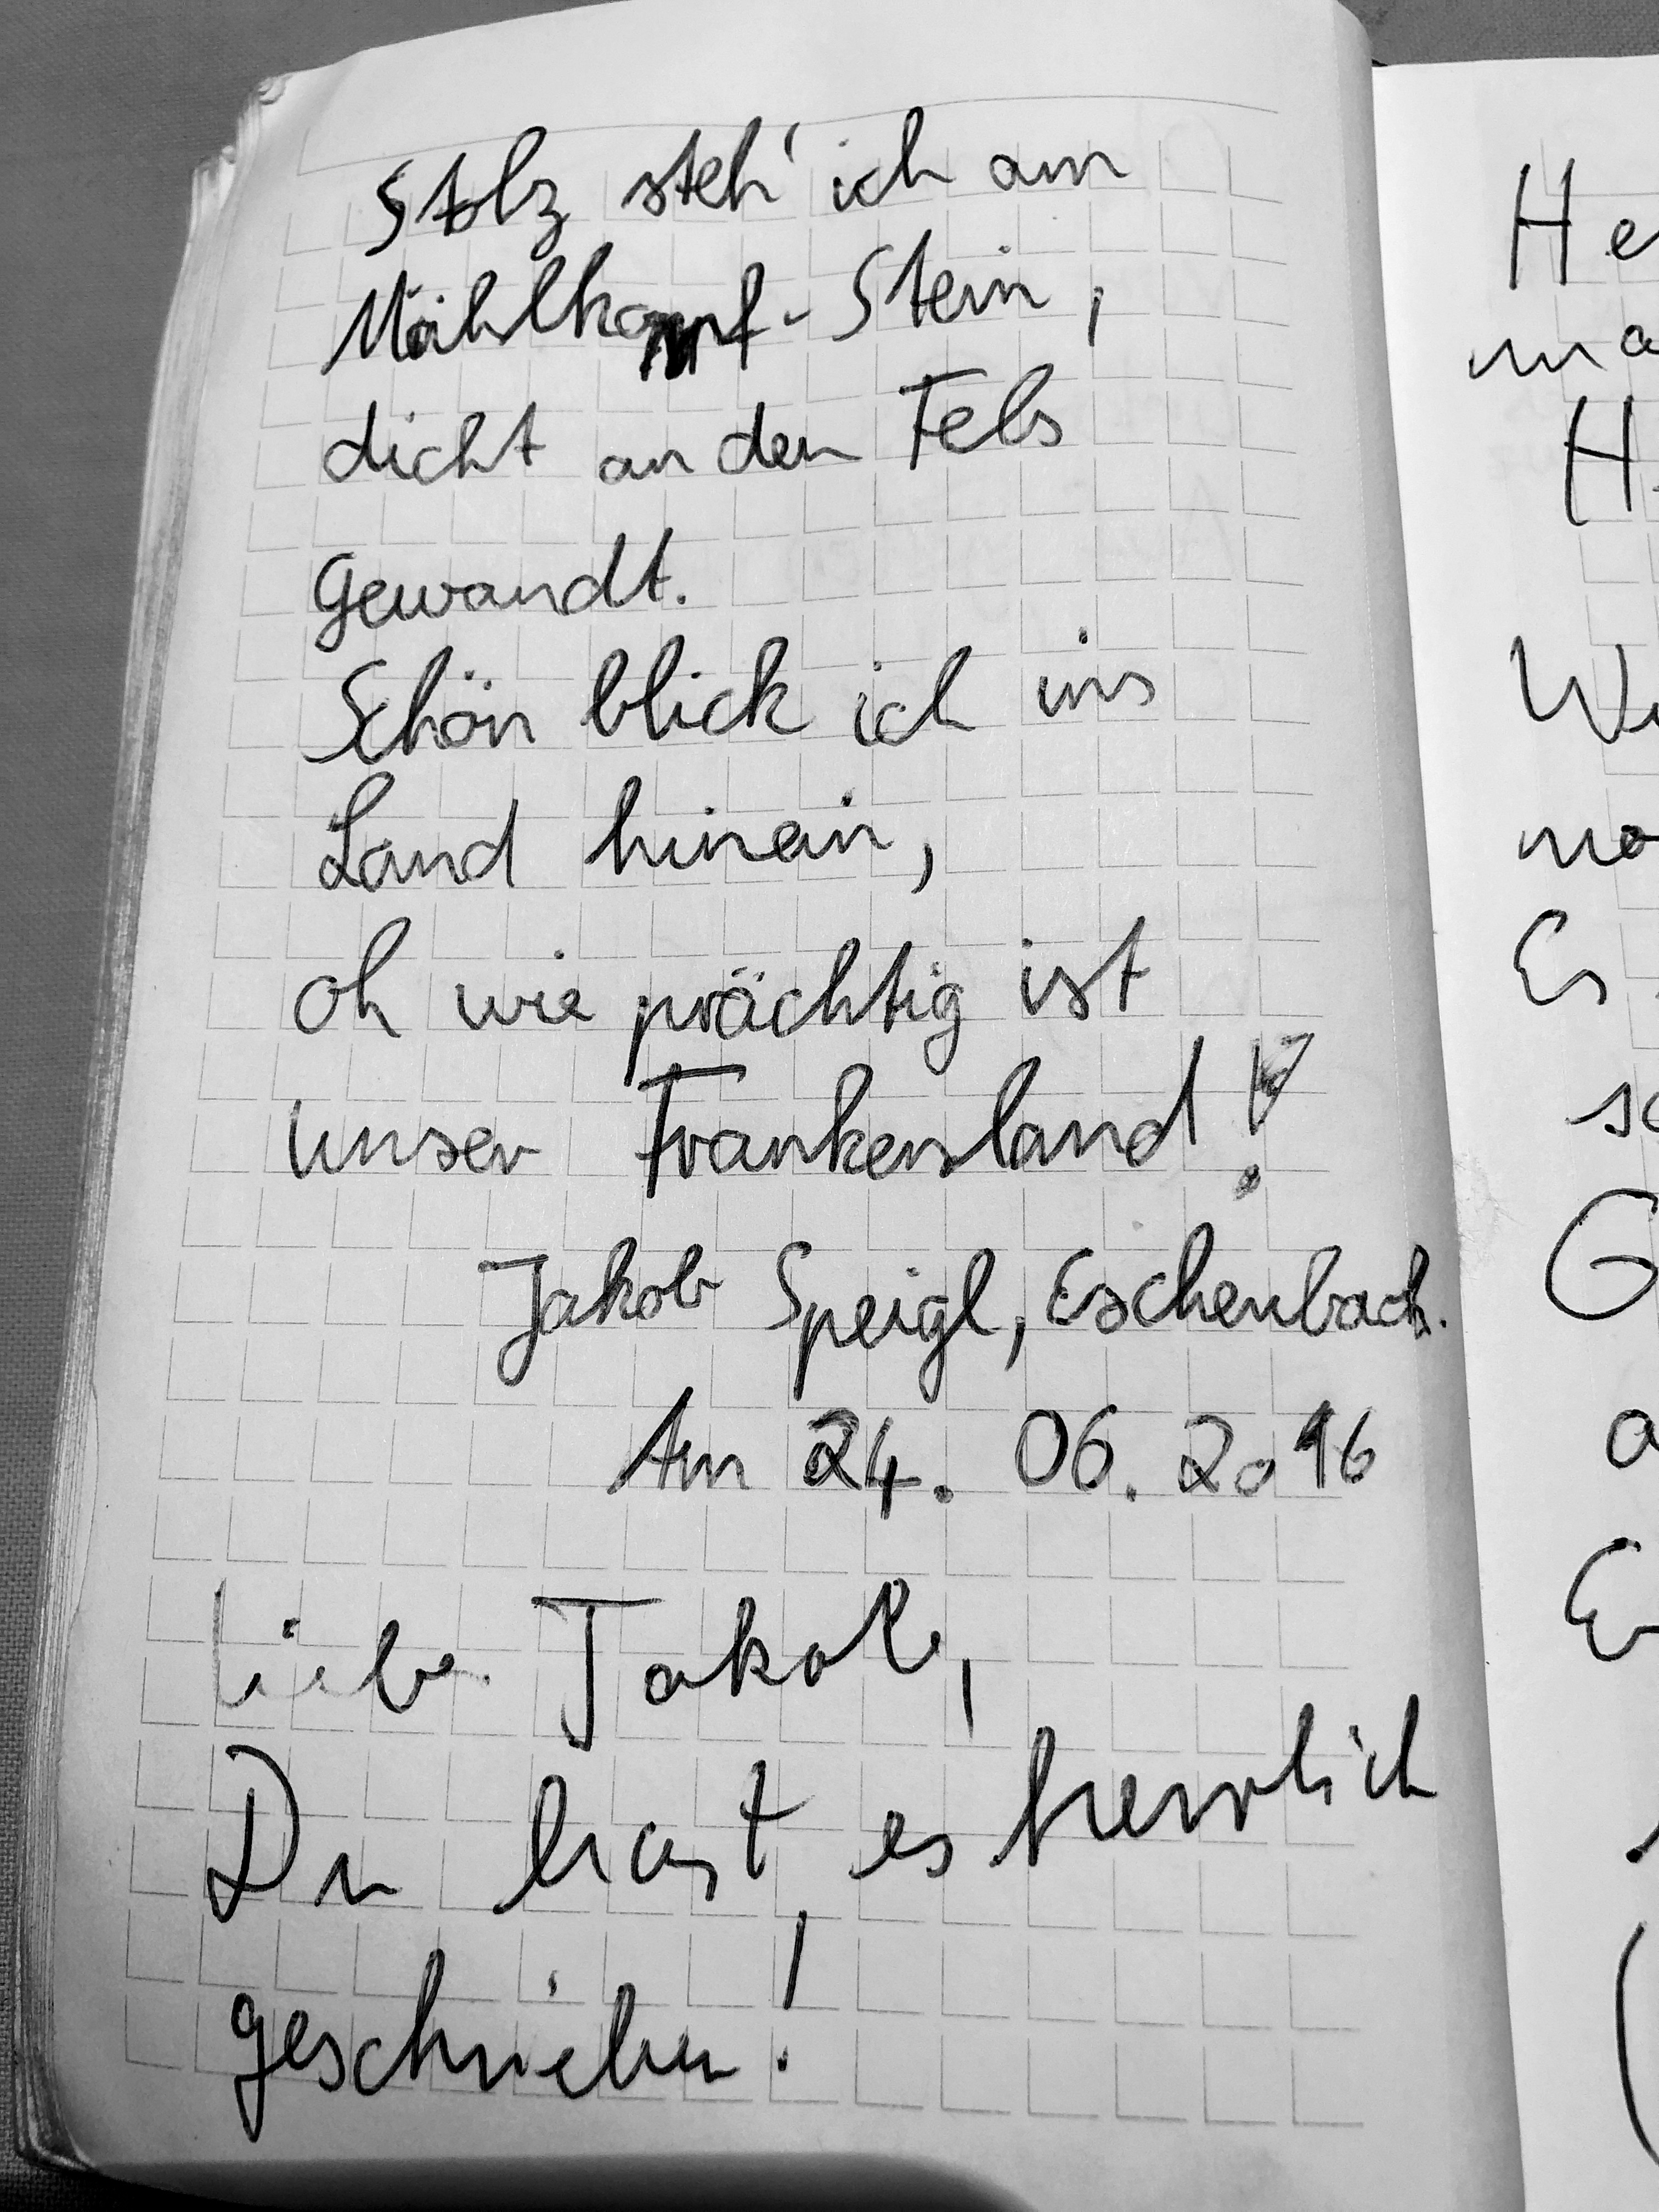 Stolz steh' ich am
Mählkampf-Stein,
dicht an den Fels
Gewandt.
Schön blick ich ins
Land hinein,
oh wie prächtig ist
unser Frankenland!
Jakob Speigl, Eschenbach.
Am 24. 06. 2016
Lieber Jakob,
Du hast es herrlich
geschrieben!
He
ma
H
We
Es
sc
G
a